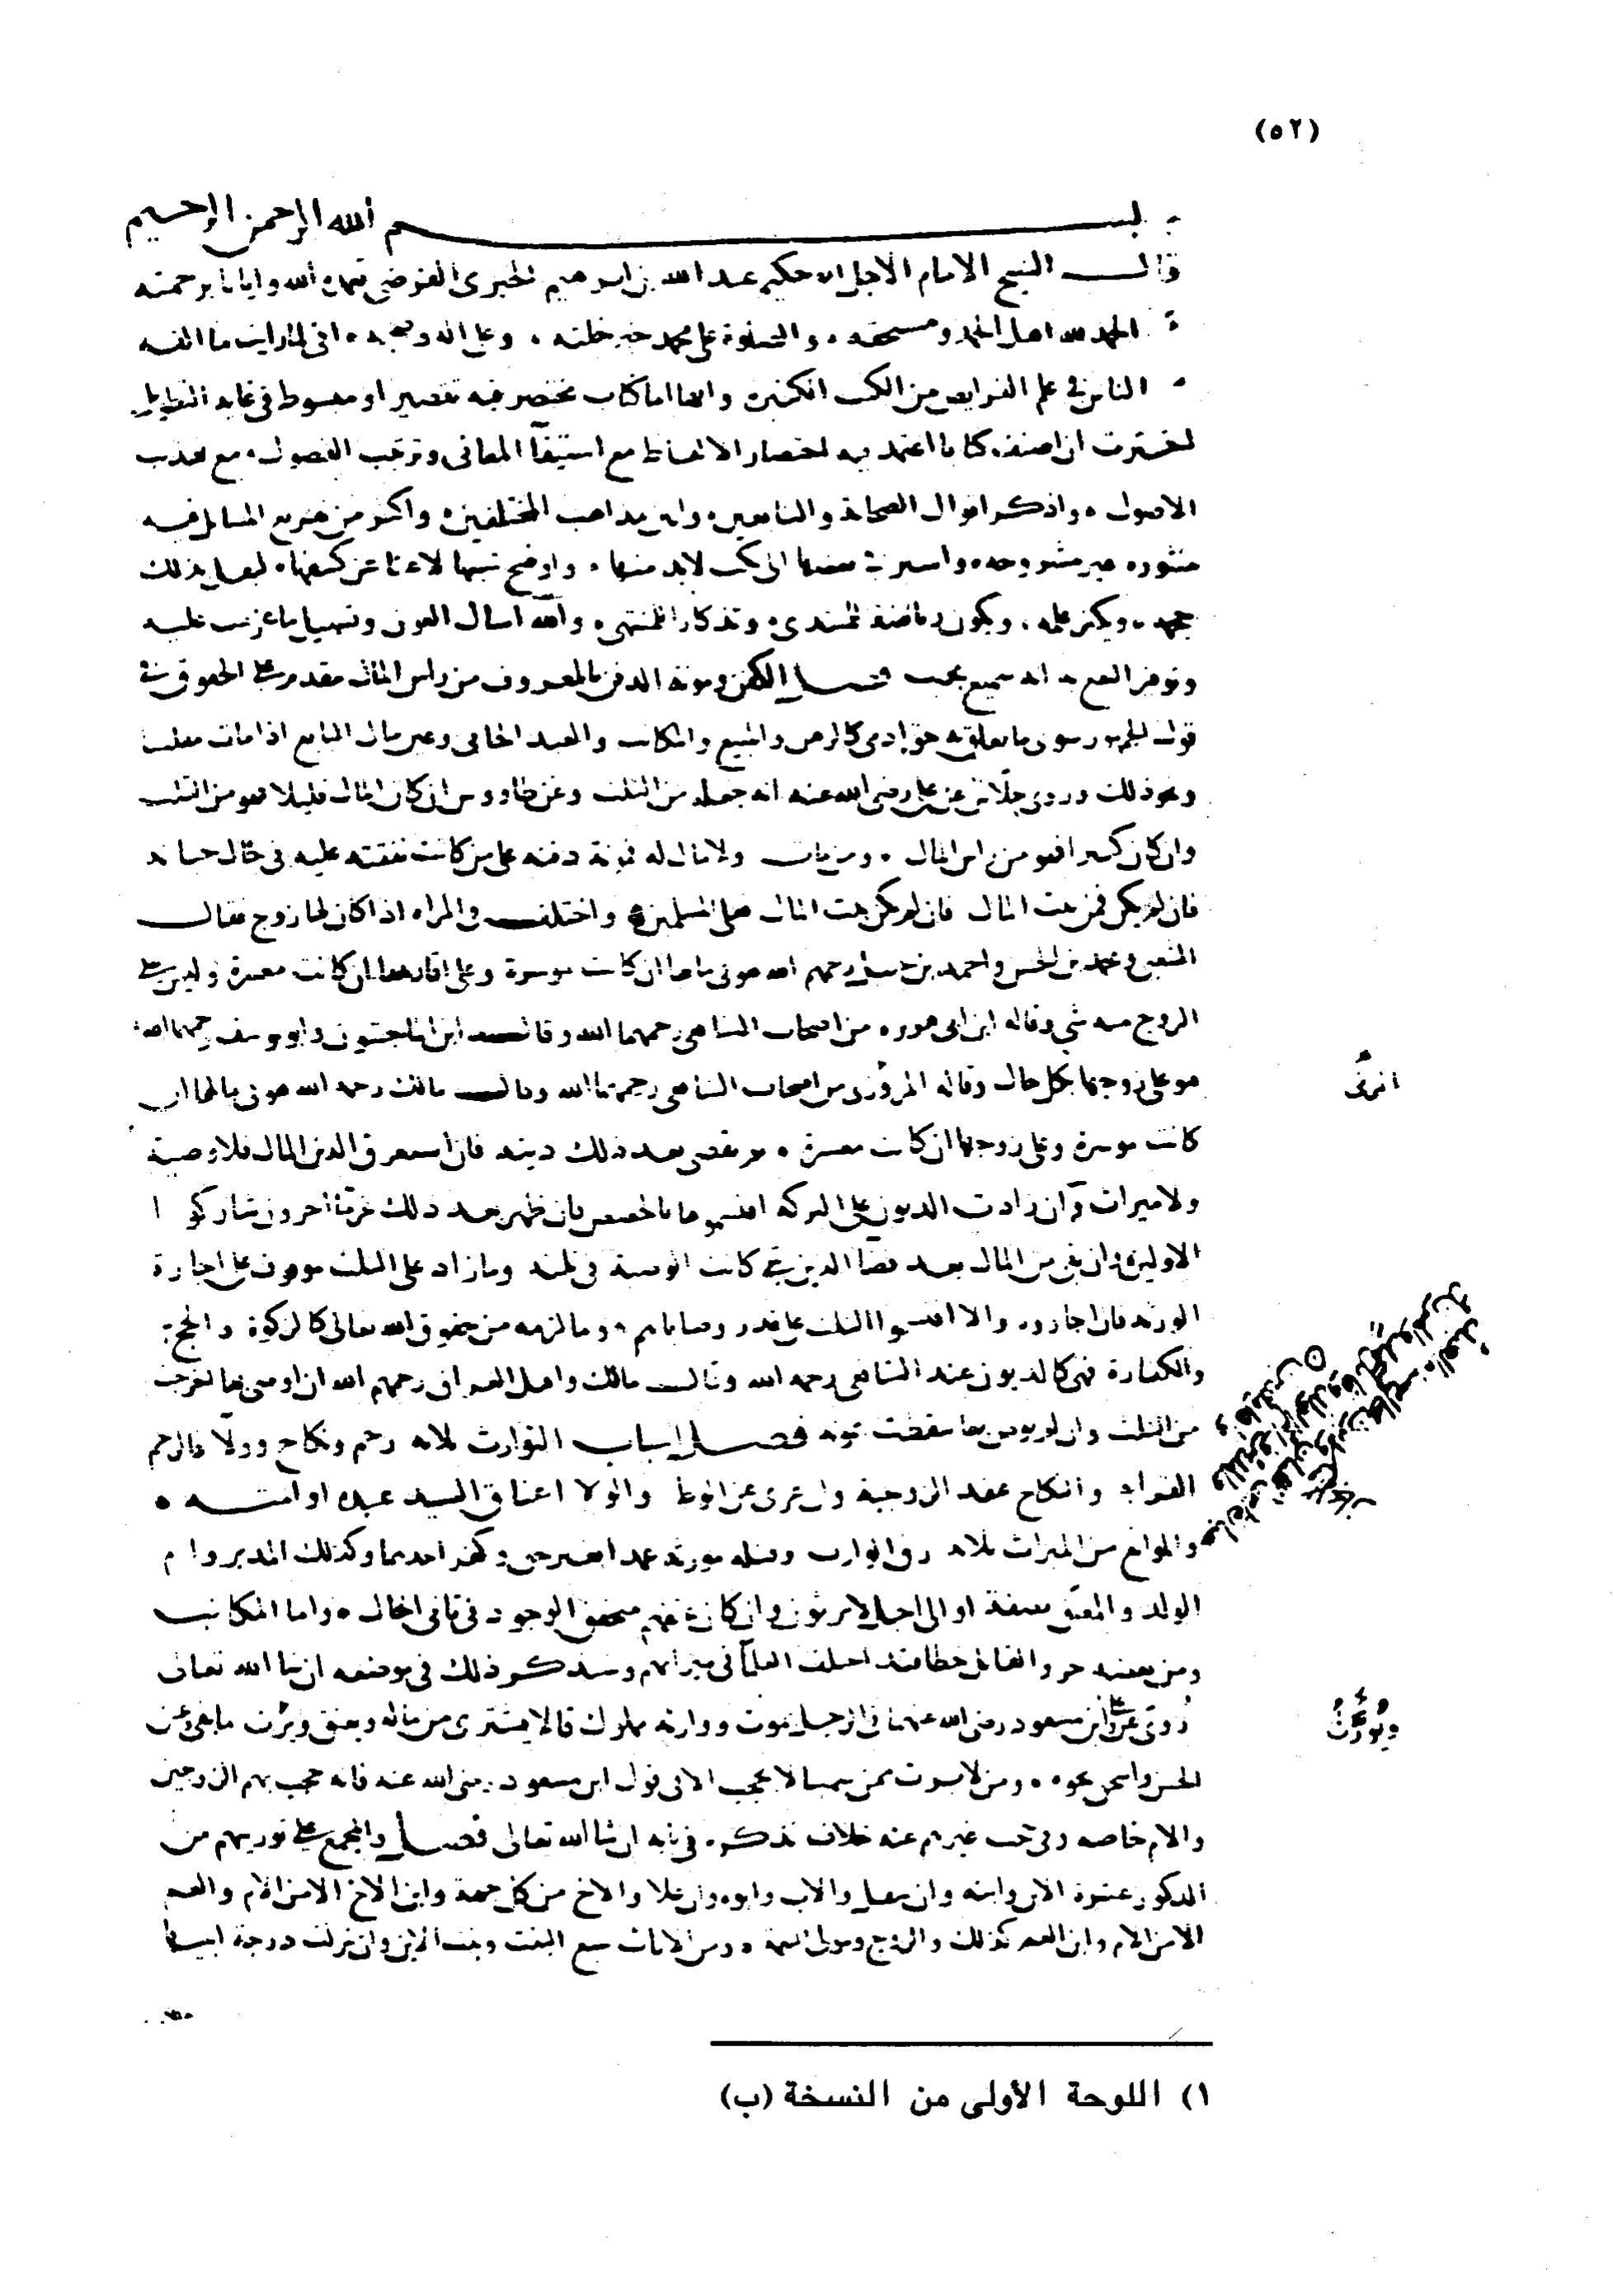 (٥٢)
بسم الله الرحمن الرحيم
قال الشيخ الامام الاجل ابو حكيم عبد الله بن ابرهيم الخبرى الفرضى تغمده الله وايانا برحمته
الحمد لله اهل الحمد ومستحقه والصلوة على محمد خير خلقه وعلى اله وصحبه انى لما رايت ما الفه
الناس فى علم الفرايض من الكتب الكثيرة وانها اما كتاب مختصر فيه تقصير او مبسوط فى غاية التطويل
اخترت ان اصنف كتابا اعتمد فيه اختصار الالفاظ مع استيفآ المعانى وترتيب الفصول مع تهذيب
الاصول واذكر اقوال الصحابة والتابعين وابين مذاهب المختلفين واكثر من المسايل فيه
منثوره غير مشروحه واشير فى بعضها الى نكت لابد منها واوضح
جحمه ويكثر علمه ويكون رياضة للمبتدى وتذكارا للمنتهى والله اسال العون وتسهيل ما عزمت عليه
وتوفر النفع به انه سميع مجيب فصل الكفن ومونة الدفن بالمعروف من راس المال مقدم على الحقوق فى
قول الجمهور سوى ما تعلق به حق ادمى كالرهن والمبيع والمكاتب والعبد الجانى وعين مال البايع اذا مات مفلسا
ونحو ذلك وروى خلاس عن على رضى الله عنه انه جعله من الثلث وعن طاووس ان كان المال قليلا فهو من الثلث
وان كان كثيرا فهو من راس المال ومن مات ولا مال له فمونة دفنه على من كانت نفقته عليه فى حال حياته
فان لم يكن فمن بيت المال فان لم يكن بيت المال فعلى المسلمين واختلف فى المراه اذا كان لها زوج فقال
الشعبى ومحمد بن الحسن واحمد بن حنبل رحمهم الله هو فى مالها ان كانت موسرة وعلى اقاربها ان كانت معسرة وليس على
الزوج منه شى وقاله ابن ابى هريره من اصحاب الشافعى رحمهما الله وقال ابن الماجشون وابو يوسف رحمهما الله
هو على زوجها بكل حال وقاله المروزى من اصحاب الشافعى رحمهما الله وقال مالك رحمه الله هو فى مالها ان
كانت موسرة وعلى زوجها ان كانت معسرة ثم يقضى بعد ذلك دينه فان استغرق الدين المال فلا وصية
ولا ميراث وان زادت الديون على التركه اقتسموها بالحصص فان ظهر بعد ذلك غرمآ اخرون شاركوا
الاولين وان بقى من المال بعد قضا الدين شى كانت الوصية فى ثلثه وما زاد على الثلث موقوف على اجازة
الورثه فان اجازوه والا اقتسموا الثلث على قدر وصاياهم وما لزمه من حقوق الله تعالى كالزكوة والحج
والكفارة فهى كالديون عند الشافعى رحمه الله وقال مالك واهل العراق رحمهم الله ان اوصى بها اخرجت
من الثلث وان لم يوص بها سقطت بموته فصل اسباب التوارث ثلاثه رحم ونكاح وولآ فالرحم
القرابه والنكاح عقد الزوجية وان عرى عن الوطء والولا اعتاق السيد عبده او امته
والموانع من الميراث ثلاثه رق الوارث وقتله مورثه عمدا بغير حق وكفر احدهما وكذلك المدبر وام
الولد والمعتق بصفة او الى اجل لا يرثون وان كان عتقهم متحقق الوجود فى ثانى الحال واما المكاتب
ومن بعضه حر والقاتل خطا فقد اختلف العلمآ فى ميراثهم وسنذكر ذلك فى موضعه ان شا الله تعالى
روى عن على وابن مسعود رضى الله عنهما فى الرجل يموت ووارثه مملوك قالا يشترى من ماله ويعتق ويرث ما بقى وعن
الحسن واسحق نحوه ومن لا يرث ممن سمينا لا يحجب الا فى قول ابن مسعود رضى الله عنه فانه حجب بهم الزوجين
والام خاصه وفى حجب غيرهم عنه خلاف نذكره فى بابه ان شا الله تعالى فصل والمجمع على توريثهم من
الذكور عشرة الابن وابنه وان سفل والاب وابوه وان علا والاخ من كل جهة وابن الاخ الا من الام والعم
الا من الام وابن العم كذلك والزوج ومولى النعمة ومن الاناث سبع البنت وبنت الابن وان نزلت درجة ابيها
١) اللوحة الأولى من النسخة (ب)